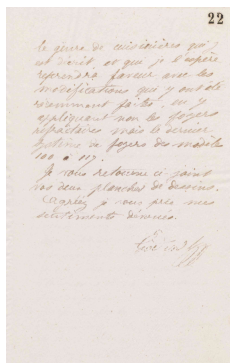 22
le genre de cuisinières qui y
est décrit et que je l'espère
reprendra faveur avec les
modifications qui y ont été
récemment faites, en y
appliquant non les foyers
réfractaires mais le dernier
système de foyers des modèles
100 à 117.
Je vous retourne ci joint
vos deux planches de dessins.
Agréez je vous prie mes
sentiments dévoués.